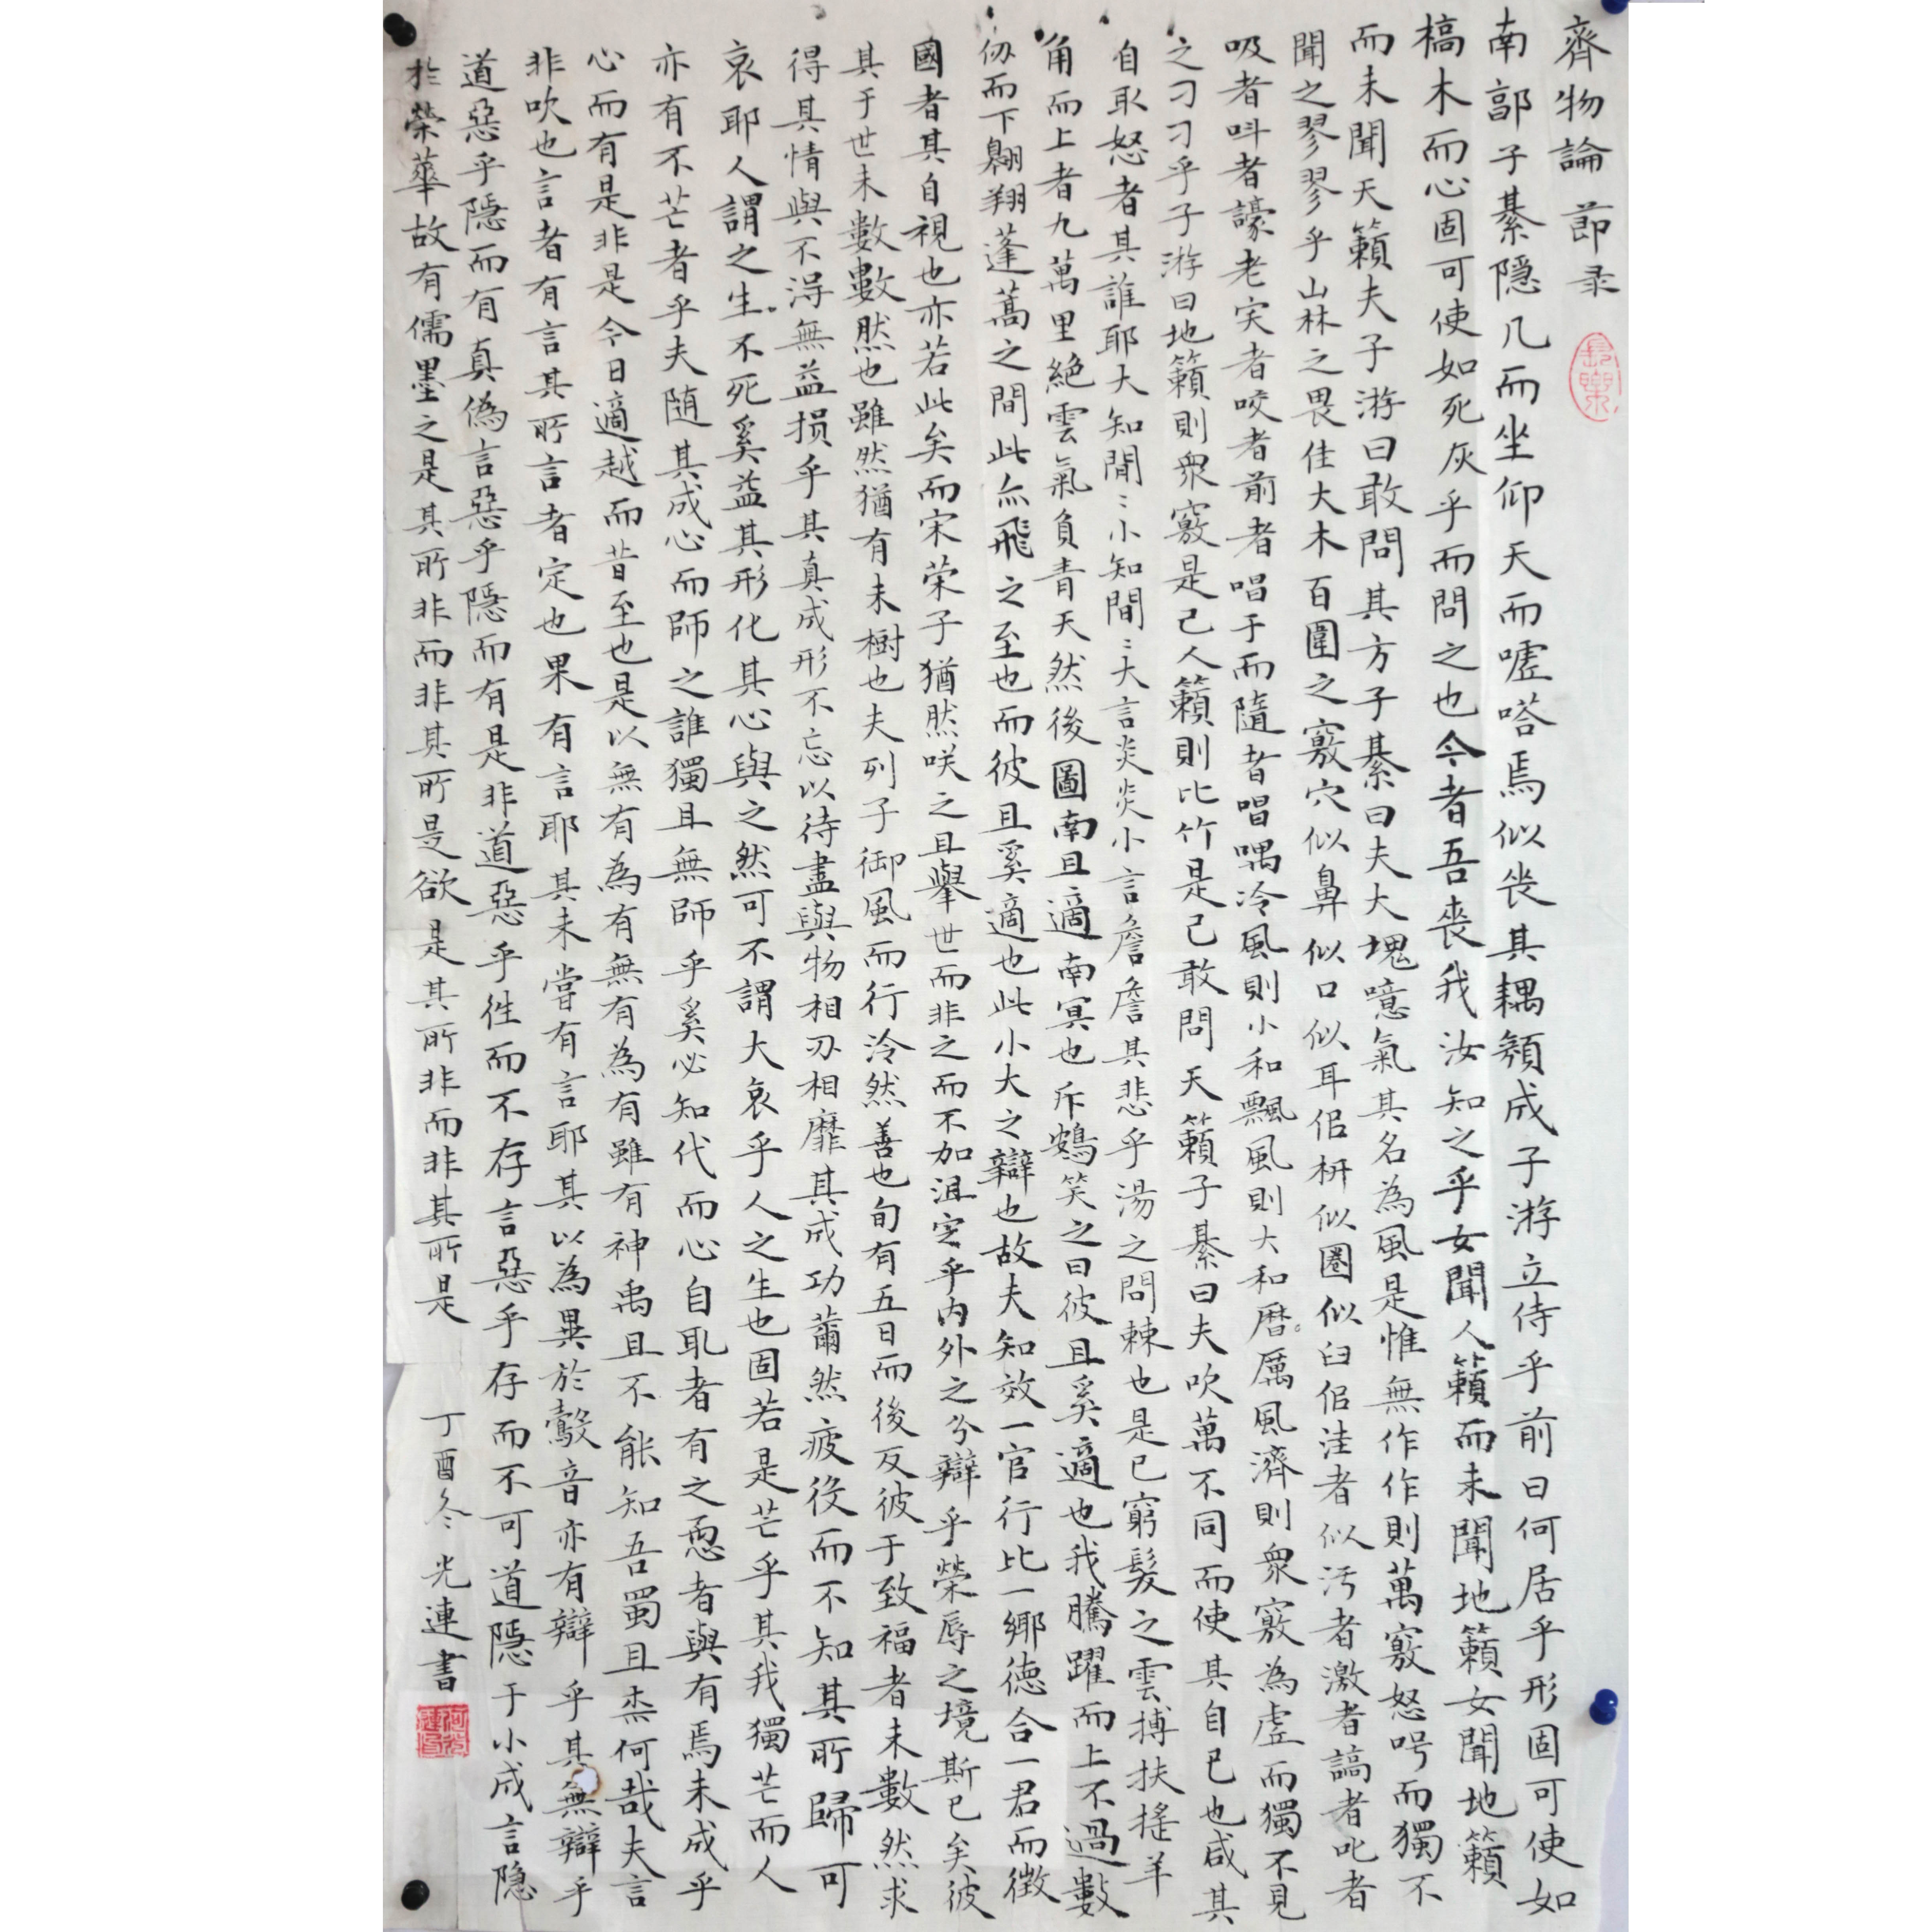 齊物論 節录
長樂
南郭子綦隱几而坐仰天而噓嗒焉似丧其耦顏成子游立侍乎前曰何居乎形固可使如
槁木而心固可使如死灰乎而問之也今者吾喪我汝知之乎女聞人籟而未聞地籟女聞地籟
而未聞天籟夫子游曰敢問其方子綦曰夫大塊噫氣其名為風是惟無作作則萬竅怒呺而獨不
聞之翏翏乎山林之畏佳大木百圍之竅穴似鼻似口似耳侣枅似圈似臼侣洼者似污者激者謞者叱者
吸者叫者譹者宎者咬者前者唱于而隨者唱喁冷風則小和飄風則大和厲風濟則衆竅為虛而獨不見
之刁刁乎子游曰地籟則衆竅是已人籟則比竹是已敢問天籟子綦曰夫吹萬不同而使其自已也咸其
自取怒者其誰耶大知閒〻小知間〻大言炎炎小言詹詹其悲乎湯之問棘也是已窮髮之雲搏扶搖羊
角而上者九萬里絕雲氣負青天然後圖南且適南冥也斥鴳笑之曰彼且奚適也我騰躍而上不過數
仞而下翱翔蓬蒿之間此亦飛之至也而彼且奚適也此小大之辯也故夫知效一官行比一鄉德合一君而徵
國者其自視也亦若此矣而宋荣子猶然咲之且舉世而非之而不加沮定乎内外之分辯乎榮辱之境斯已矣彼
其于世未數數然也雖然猶有未樹也夫列子御風而行泠然善也旬有五日而後反彼于致福者未數然求
得其情與不淂無益損乎其真成形不忘以待盡與物相刃相靡其成功薾然疲役而不知其所歸可
哀耶人謂之生不死奚益其形化其心與之然可不謂大哀乎人之生也固若是芒乎其我獨芒而人
亦有不芒者乎夫随其成心而師之誰獨且無師乎奚必知代而心自取者有之愚者與有焉未成乎
心而有是非是今日適越而昔至也是以無有為有無有為有雖有神禹且不能知吾蜀且柰何哉夫言
非吹也言者有言其所言者定也果有言耶其未嘗有言耶其以為異於鷇音亦有辯乎其無辯乎
道惡乎隱而有真偽言惡乎隱而有是非道惡乎徃而不存言惡乎存而不可道隱于小成言隐
於榮華故有儒墨之是其所非而非其所是欲是其所非而非其所是
丁酉冬 光連書